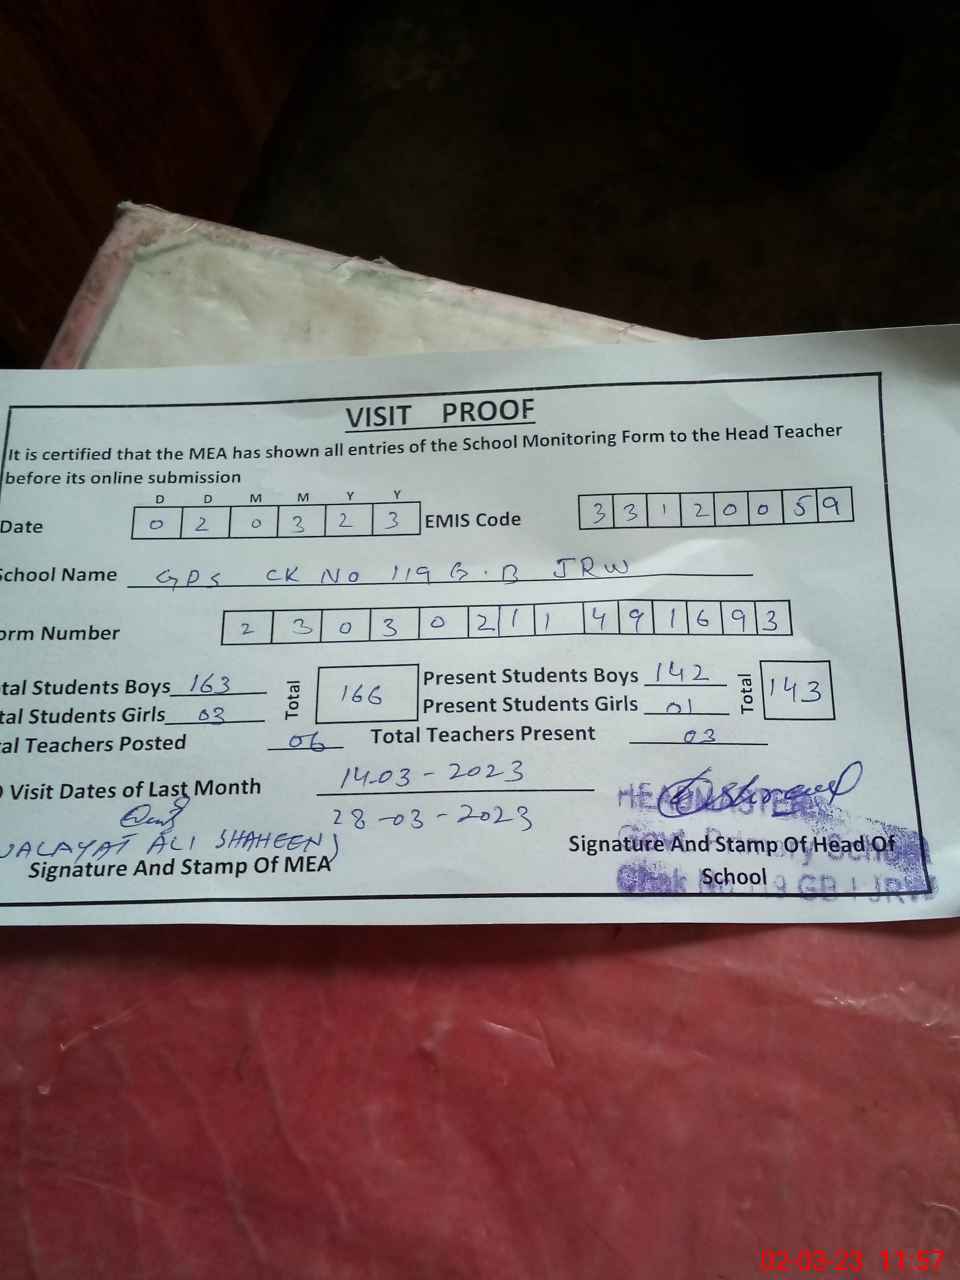 VISIT PROOF
It is certified that the MEA has shown all entries of the School Monitoring Form to the Head Teacher
before its online submission
D D M M Y Y
Date 0 2 0 3 2 3 EMIS Code 3 3 1 2 0 0 5 9
School Name GPS CK No 119 G.B JRW
orm Number 2 3 0 3 0 2 1 1 4 9 1 6 9 3
tal Students Boys 163 Total 166 Present Students Boys 142 Total 143
tal Students Girls 03 Present Students Girls 01
al Teachers Posted 06 Total Teachers Present 03
Visit Dates of Last Month 14-03-2023
28-03-2023
WALAYAT ALI SHAHEEN
Signature And Stamp Of MEA
HEADMASTER
Govt. Primary School
Chak No 119 GB JRW
Signature And Stamp Of Head Of
School
02-03-23 11:57